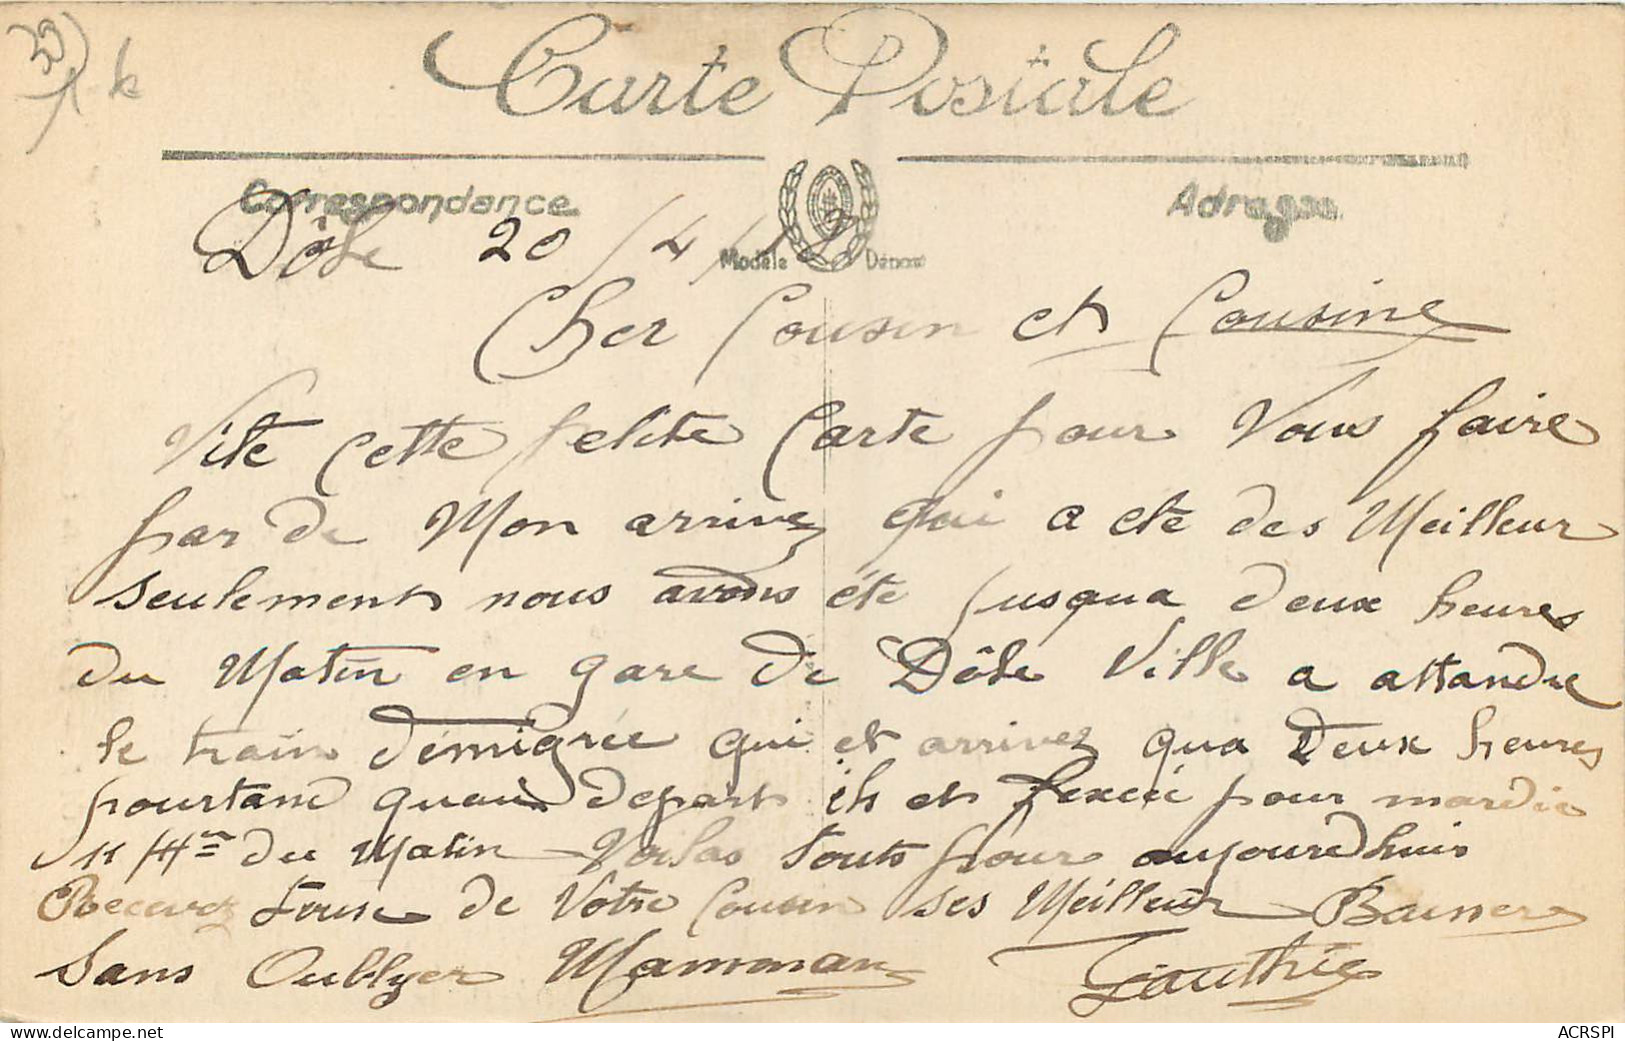 Carte Postale
Correspondance
Adresse
Modèle Déposé
Dôle 20/4/
Cher Cousin et Cousine
Vite cette petite Carte pour Vous faire
par de Mon arrivez qui a ete des Meilleur
seulement nous avons été jusqua deux heures
du Matin en gare de Dôle Ville a attandre
le train démigrée qui et arrivez qua Deux heures
pourtant quan depart ih et fexcé pour mardie
11 Hre du Matin Voilas touts pour aujourdhuis
Recevez tous de Votre Cousin ses Meilleur Baisers
Sans Oublyer Mamman Gauthié
ACRSPI